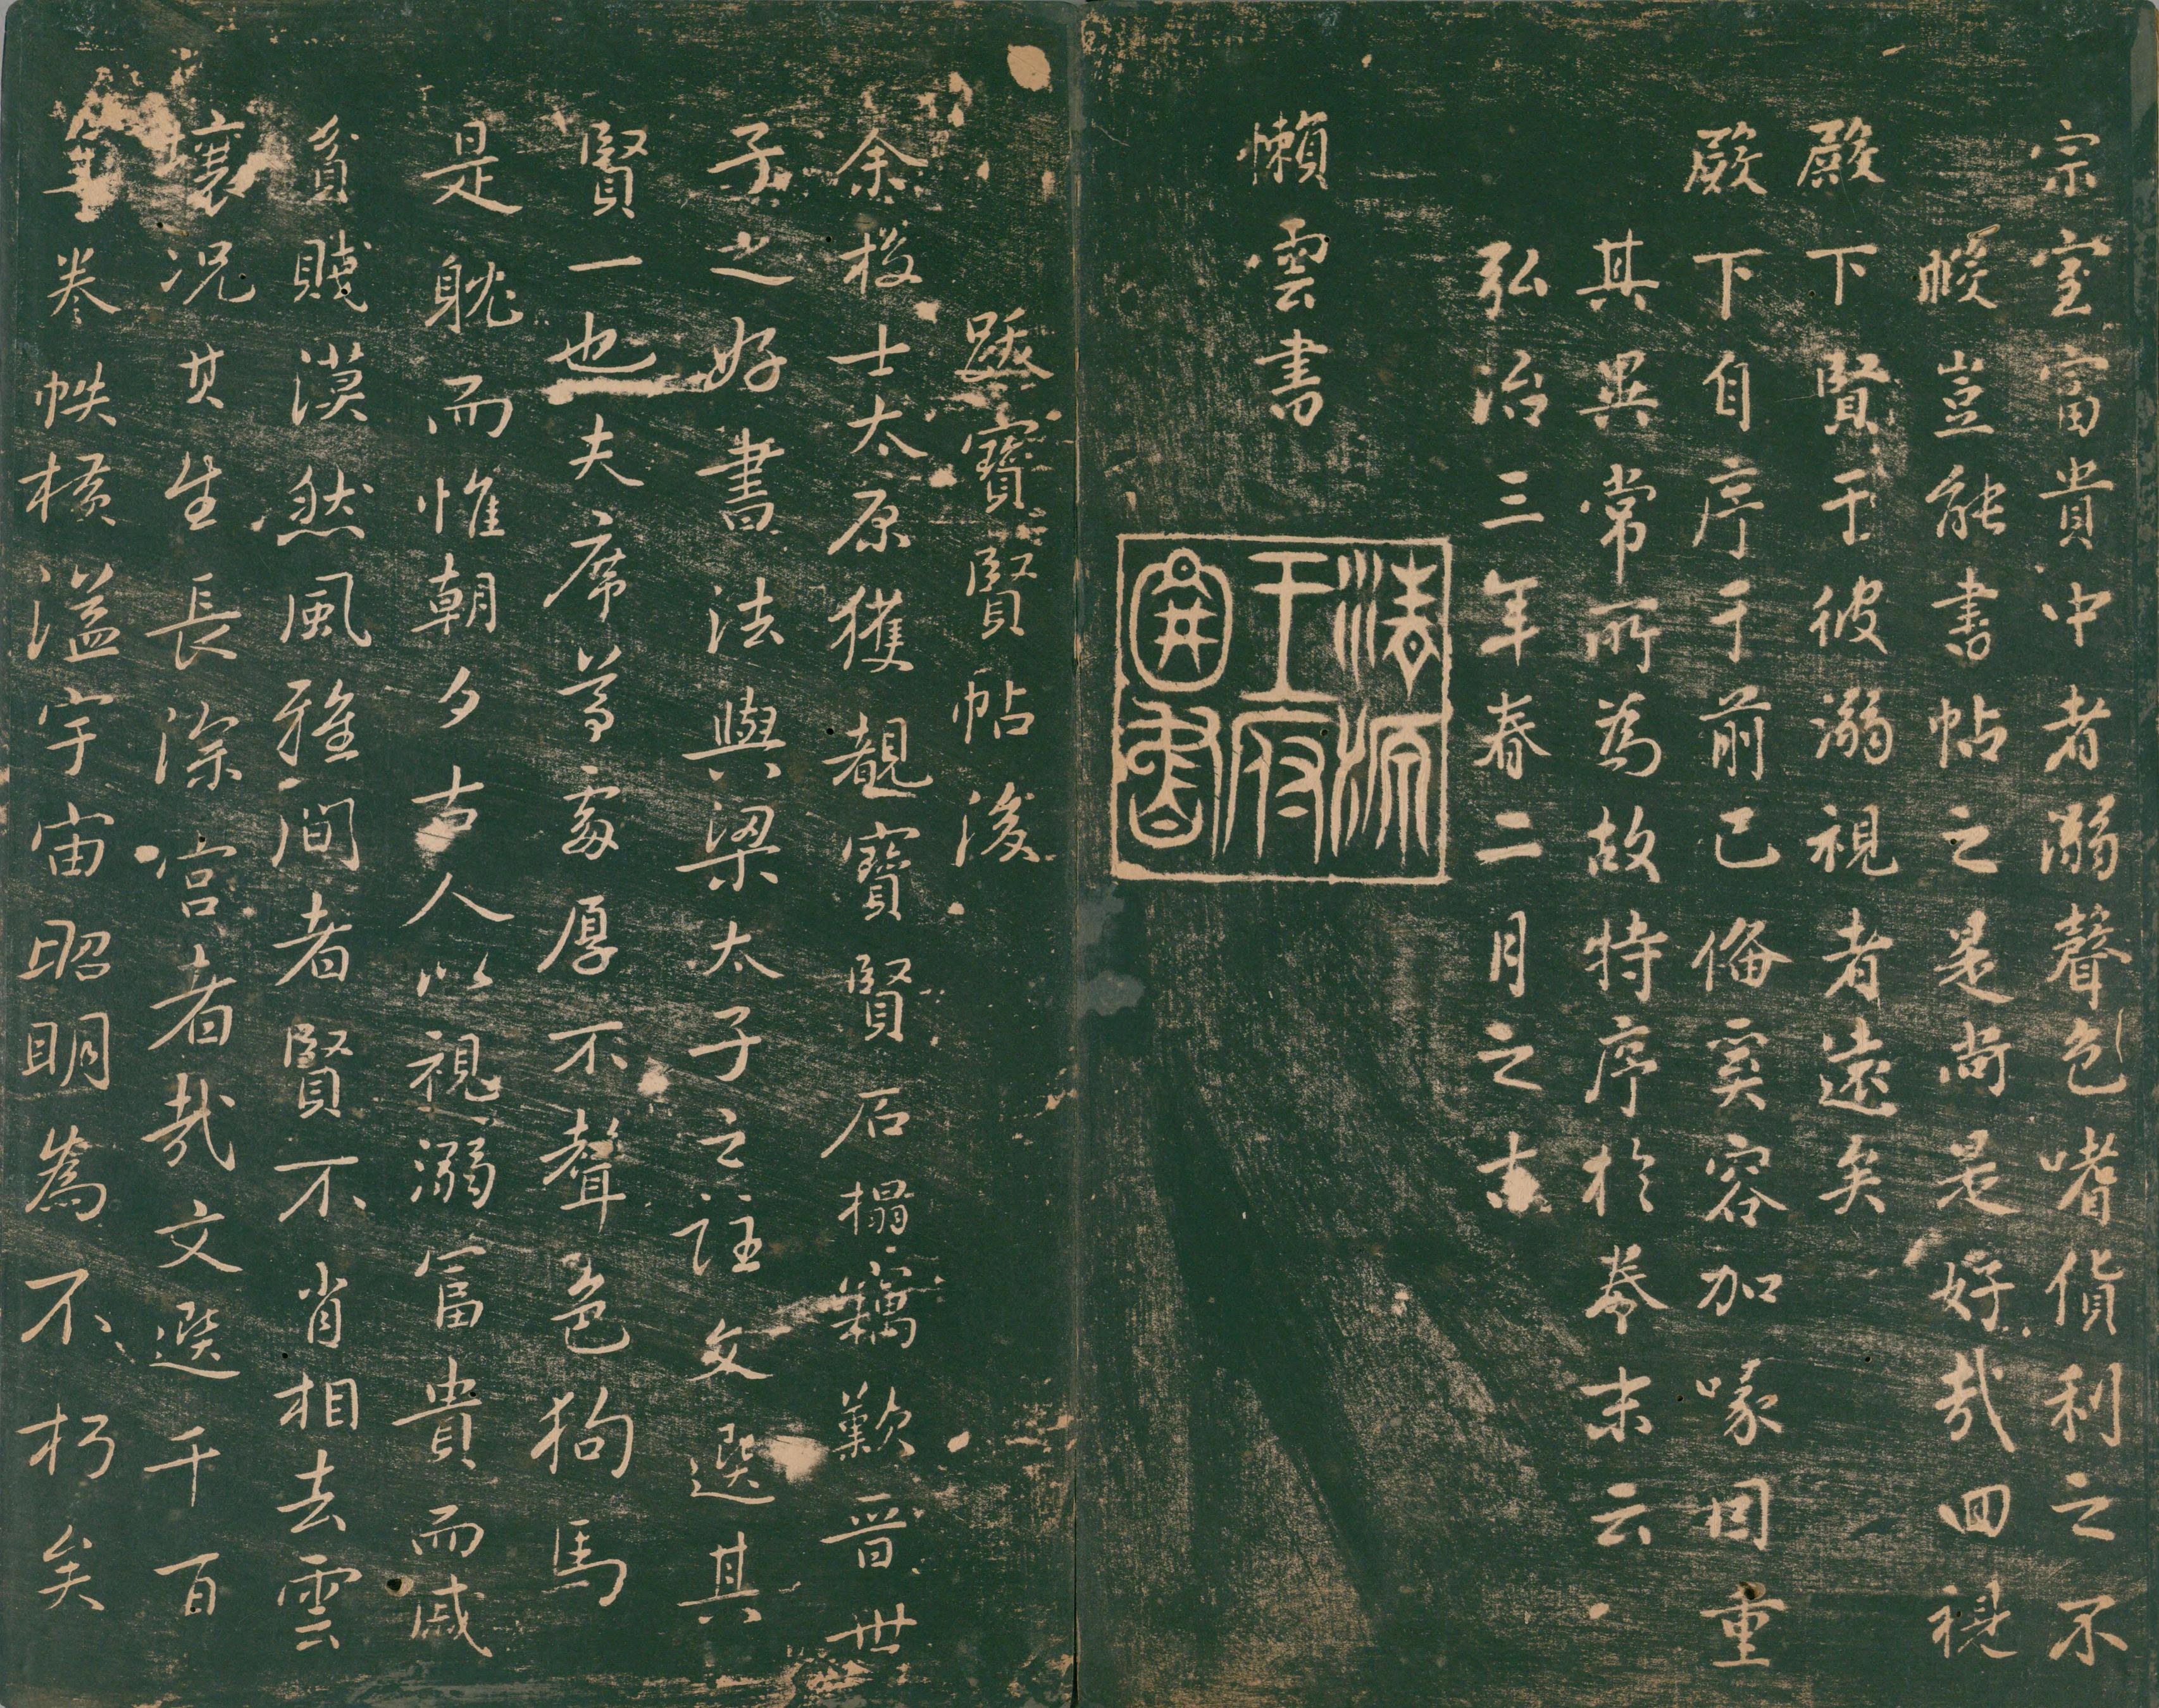 宗室富貴中者溺聲色嗜貨利之不
暇豈能書帖之是尚是好哉回視
殿下賢于彼溺視者遠矣
殿下自序于前已備奚容加喙因重
其異常所為故特序於卷末云
弘治三年春二月之吉
清源
王府
圖書
懶雲書
跋寶賢帖後
余校士太原獲覩寶賢石榻竊歎晉世
子之好書法與梁太子之註文選其
賢一也夫席尊處厚不聲色狗馬
是躭而惟朝夕古人以視溺富貴而戚
貧賤漠然風雅間者賢不肖相去雲
壤况其生長深宮者哉文選千百
年卷帙橫溢宇宙昭明為不朽矣